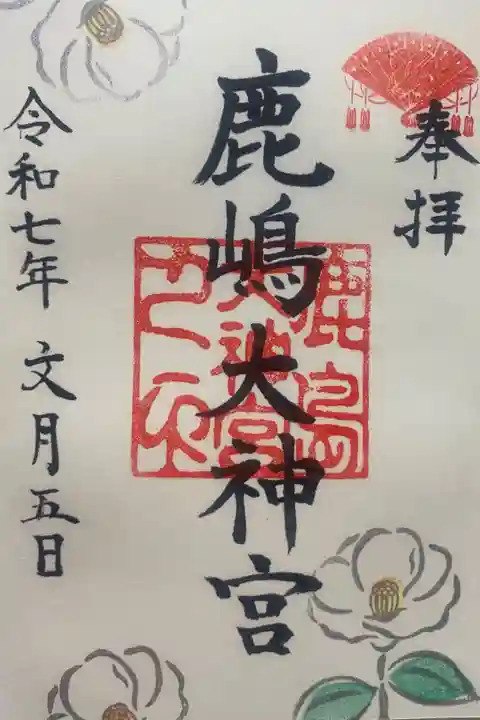 奉拝
鹿嶋大神宮
令和七年 文月五日